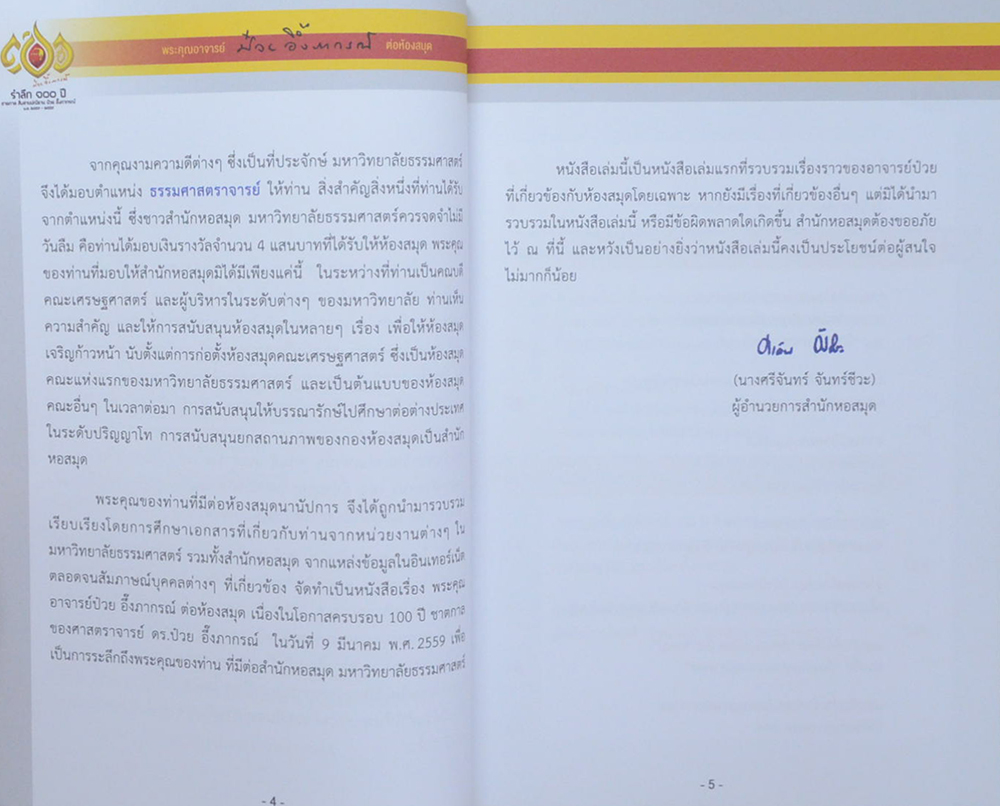 พระคุณอาจารย์ ป๋วย อึ๊งภากรณ์ ต่อห้องสมุด
รำลึก ๑๐๐ ปี
จากคุณงามความดีต่างๆ ซึ่งเป็นที่ประจักษ์ มหาวิทยาลัยธรรมศาสตร์
จึงได้มอบตำแหน่ง ธรรมศาสตราจารย์ ให้ท่าน สิ่งสำคัญสิ่งหนึ่งที่ท่านได้รับ
จากตำแหน่งนี้ ซึ่งชาวสำนักหอสมุด มหาวิทยาลัยธรรมศาสตร์ควรจดจำไม่มี
วันลืม คือท่านได้มอบเงินรางวัลจำนวน 4 แสนบาทที่ได้รับให้ห้องสมุด พระคุณ
ของท่านที่มอบให้สำนักหอสมุดมิได้มีเพียงแค่นี้ ในระหว่างที่ท่านเป็นคณบดี
คณะเศรษฐศาสตร์ และผู้บริหารในระดับต่างๆ ของมหาวิทยาลัย ท่านเห็น
ความสำคัญ และให้การสนับสนุนห้องสมุดในหลายๆ เรื่อง เพื่อให้ห้องสมุด
เจริญก้าวหน้า นับตั้งแต่การก่อตั้งห้องสมุดคณะเศรษฐศาสตร์ ซึ่งเป็นห้องสมุด
คณะแห่งแรกของมหาวิทยาลัยธรรมศาสตร์ และเป็นต้นแบบของห้องสมุด
คณะอื่นๆ ในเวลาต่อมา การสนับสนุนให้บรรณารักษ์ไปศึกษาต่อต่างประเทศ
ในระดับปริญญาโท การสนับสนุนยกสถานภาพของกองห้องสมุดเป็นสำนัก
หอสมุด
พระคุณของท่านที่มีต่อห้องสมุดนานัปการ จึงได้ถูกนำมารวบรวม
เรียบเรียงโดยการศึกษาเอกสารที่เกี่ยวกับท่านจากหน่วยงานต่างๆ ใน
มหาวิทยาลัยธรรมศาสตร์ รวมทั้งสำนักหอสมุด จากแหล่งข้อมูลในอินเทอร์เน็ต
ตลอดจนสัมภาษณ์บุคคลต่างๆ ที่เกี่ยวข้อง จัดทำเป็นหนังสือเรื่อง พระคุณ
อาจารย์ป๋วย อึ๊งภากรณ์ ต่อห้องสมุด เนื่องในโอกาสครบรอบ 100 ปี ชาตกาล
ของศาสตราจารย์ ดร.ป๋วย อึ๊งภากรณ์ ในวันที่ 9 มีนาคม พ.ศ. 2559 เพื่อ
เป็นการระลึกถึงพระคุณของท่าน ที่มีต่อสำนักหอสมุด มหาวิทยาลัยธรรมศาสตร์
- 4 -
หนังสือเล่มนี้เป็นหนังสือเล่มแรกที่รวบรวมเรื่องราวของอาจารย์ป๋วย
ที่เกี่ยวข้องกับห้องสมุดโดยเฉพาะ หากยังมีเรื่องที่เกี่ยวข้องอื่นๆ แต่มิได้นำมา
รวบรวมในหนังสือเล่มนี้ หรือมีข้อผิดพลาดใดเกิดขึ้น สำนักหอสมุดต้องขออภัย
ไว้ ณ ที่นี้ และหวังเป็นอย่างยิ่งว่าหนังสือเล่มนี้คงเป็นประโยชน์ต่อผู้สนใจ
ไม่มากก็น้อย
(นางศรีจันทร์ จันทร์ชีวะ)
ผู้อำนวยการสำนักหอสมุด
- 5 -